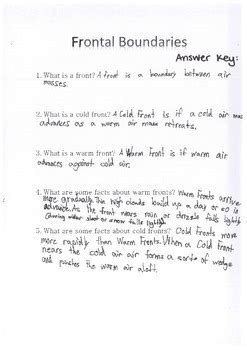 Frontal Boundaries
Answer Key:
1. What is a front? A front is a boundary between air
masses.
2. What is a cold front? A Cold Front is if a cold air mass
advances as a warm air mass retreats.
3. What is a warm front? A Warm Front is if warm air
advances against cold air.
4. What are some facts about warm fronts? Warm Fronts arrive
more gradually. Thin high clouds build up a day or so in
advance. As the front nears rain or drizzle falls lightly
5. What are some facts about cold fronts? Cold Fronts move
more rapidly than Warm Fronts. When a Cold Front
nears the cold air forms a sort of wedge
and pushes the warm air aloft.